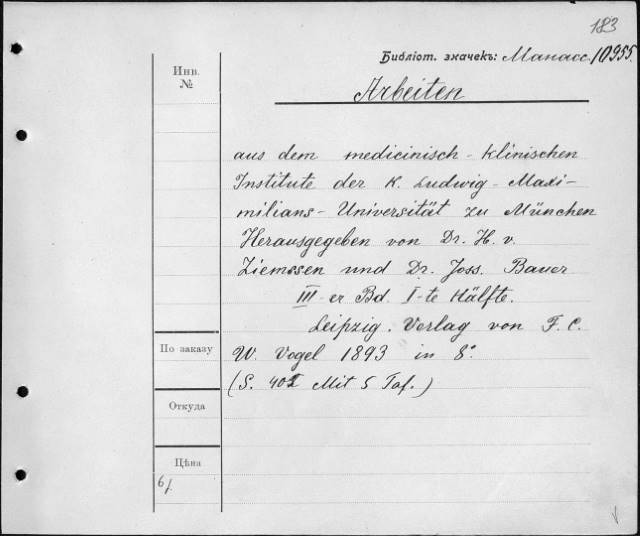 183
Библіот. значекъ: Манасс. 10955.
Инв.
№
Arbeiten
aus dem medicinisch-klinischen
Institute der K. Ludwig-Maxi-
milians-Universität zu München
Herausgegeben von Dr. H. v.
Ziemssen und Dr. Joss. Bauer
III-er Bd. I-te Hälfte.
Leipzig. Verlag von F. C.
По заказу
W. Vogel 1893 in 8°
(S. 402 Mit 5 Taf.)
Откуда
Цѣна